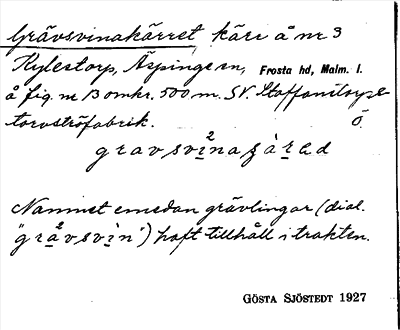 Grävsvinakärret, kärr å nr 3
Kylestorp, Äspinge sn, Frosta hd, Malm. l.
å fig. nr 13 omkr. 500 m. SV. Staffanstorps
torvströfabrik. Ö.
gravsvinaʒärəd
Namnet emedan grävlingar (dial.
"grävsvin") haft tillhåll i trakten.
GÖSTA SJÖSTEDT 1927